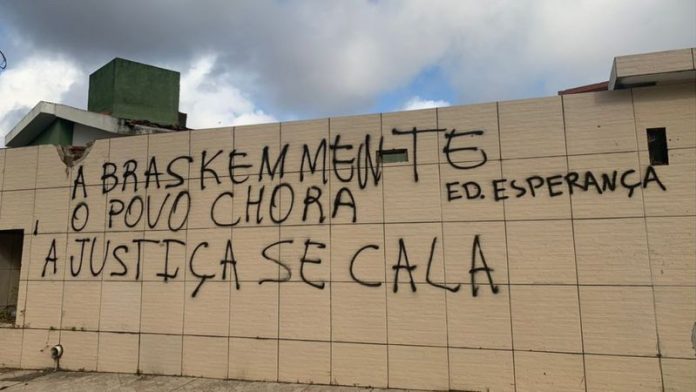 A BRASKEM MEN-TE
O POVO CHORA
A JUSTIÇA SE CALA
ED. ESPERANÇA